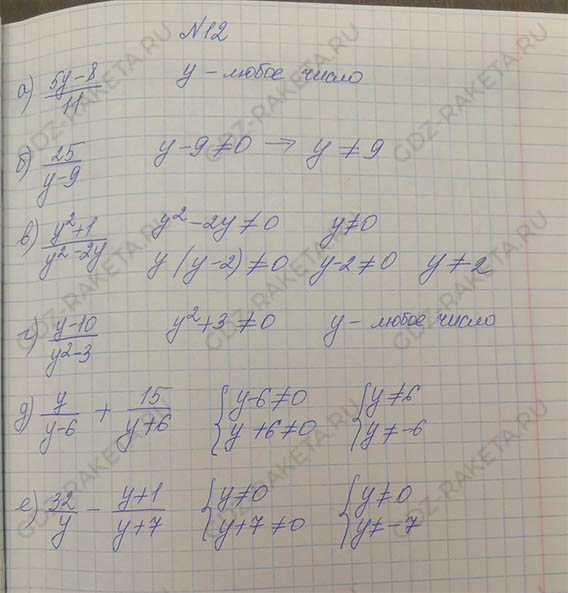 N12
а) (5y-8)/11 y - любое число
б) 25/(y-9) y-9≠0 → y≠9
в) (y²+1)/(y²-2y) y²-2y≠0 y≠0
y(y-2)≠0 y-2≠0 y≠2
г) (y-10)/(y²-3) y²+3≠0 y - любое число
д) y/(y-6) + 15/(y+6) {y-6≠0 {y≠6
{y+6≠0 {y≠-6
е) 32/y - (y+1)/(y+7) {y≠0 {y≠0
{y+7≠0 {y≠-7
GDZ-RAKETA.RU